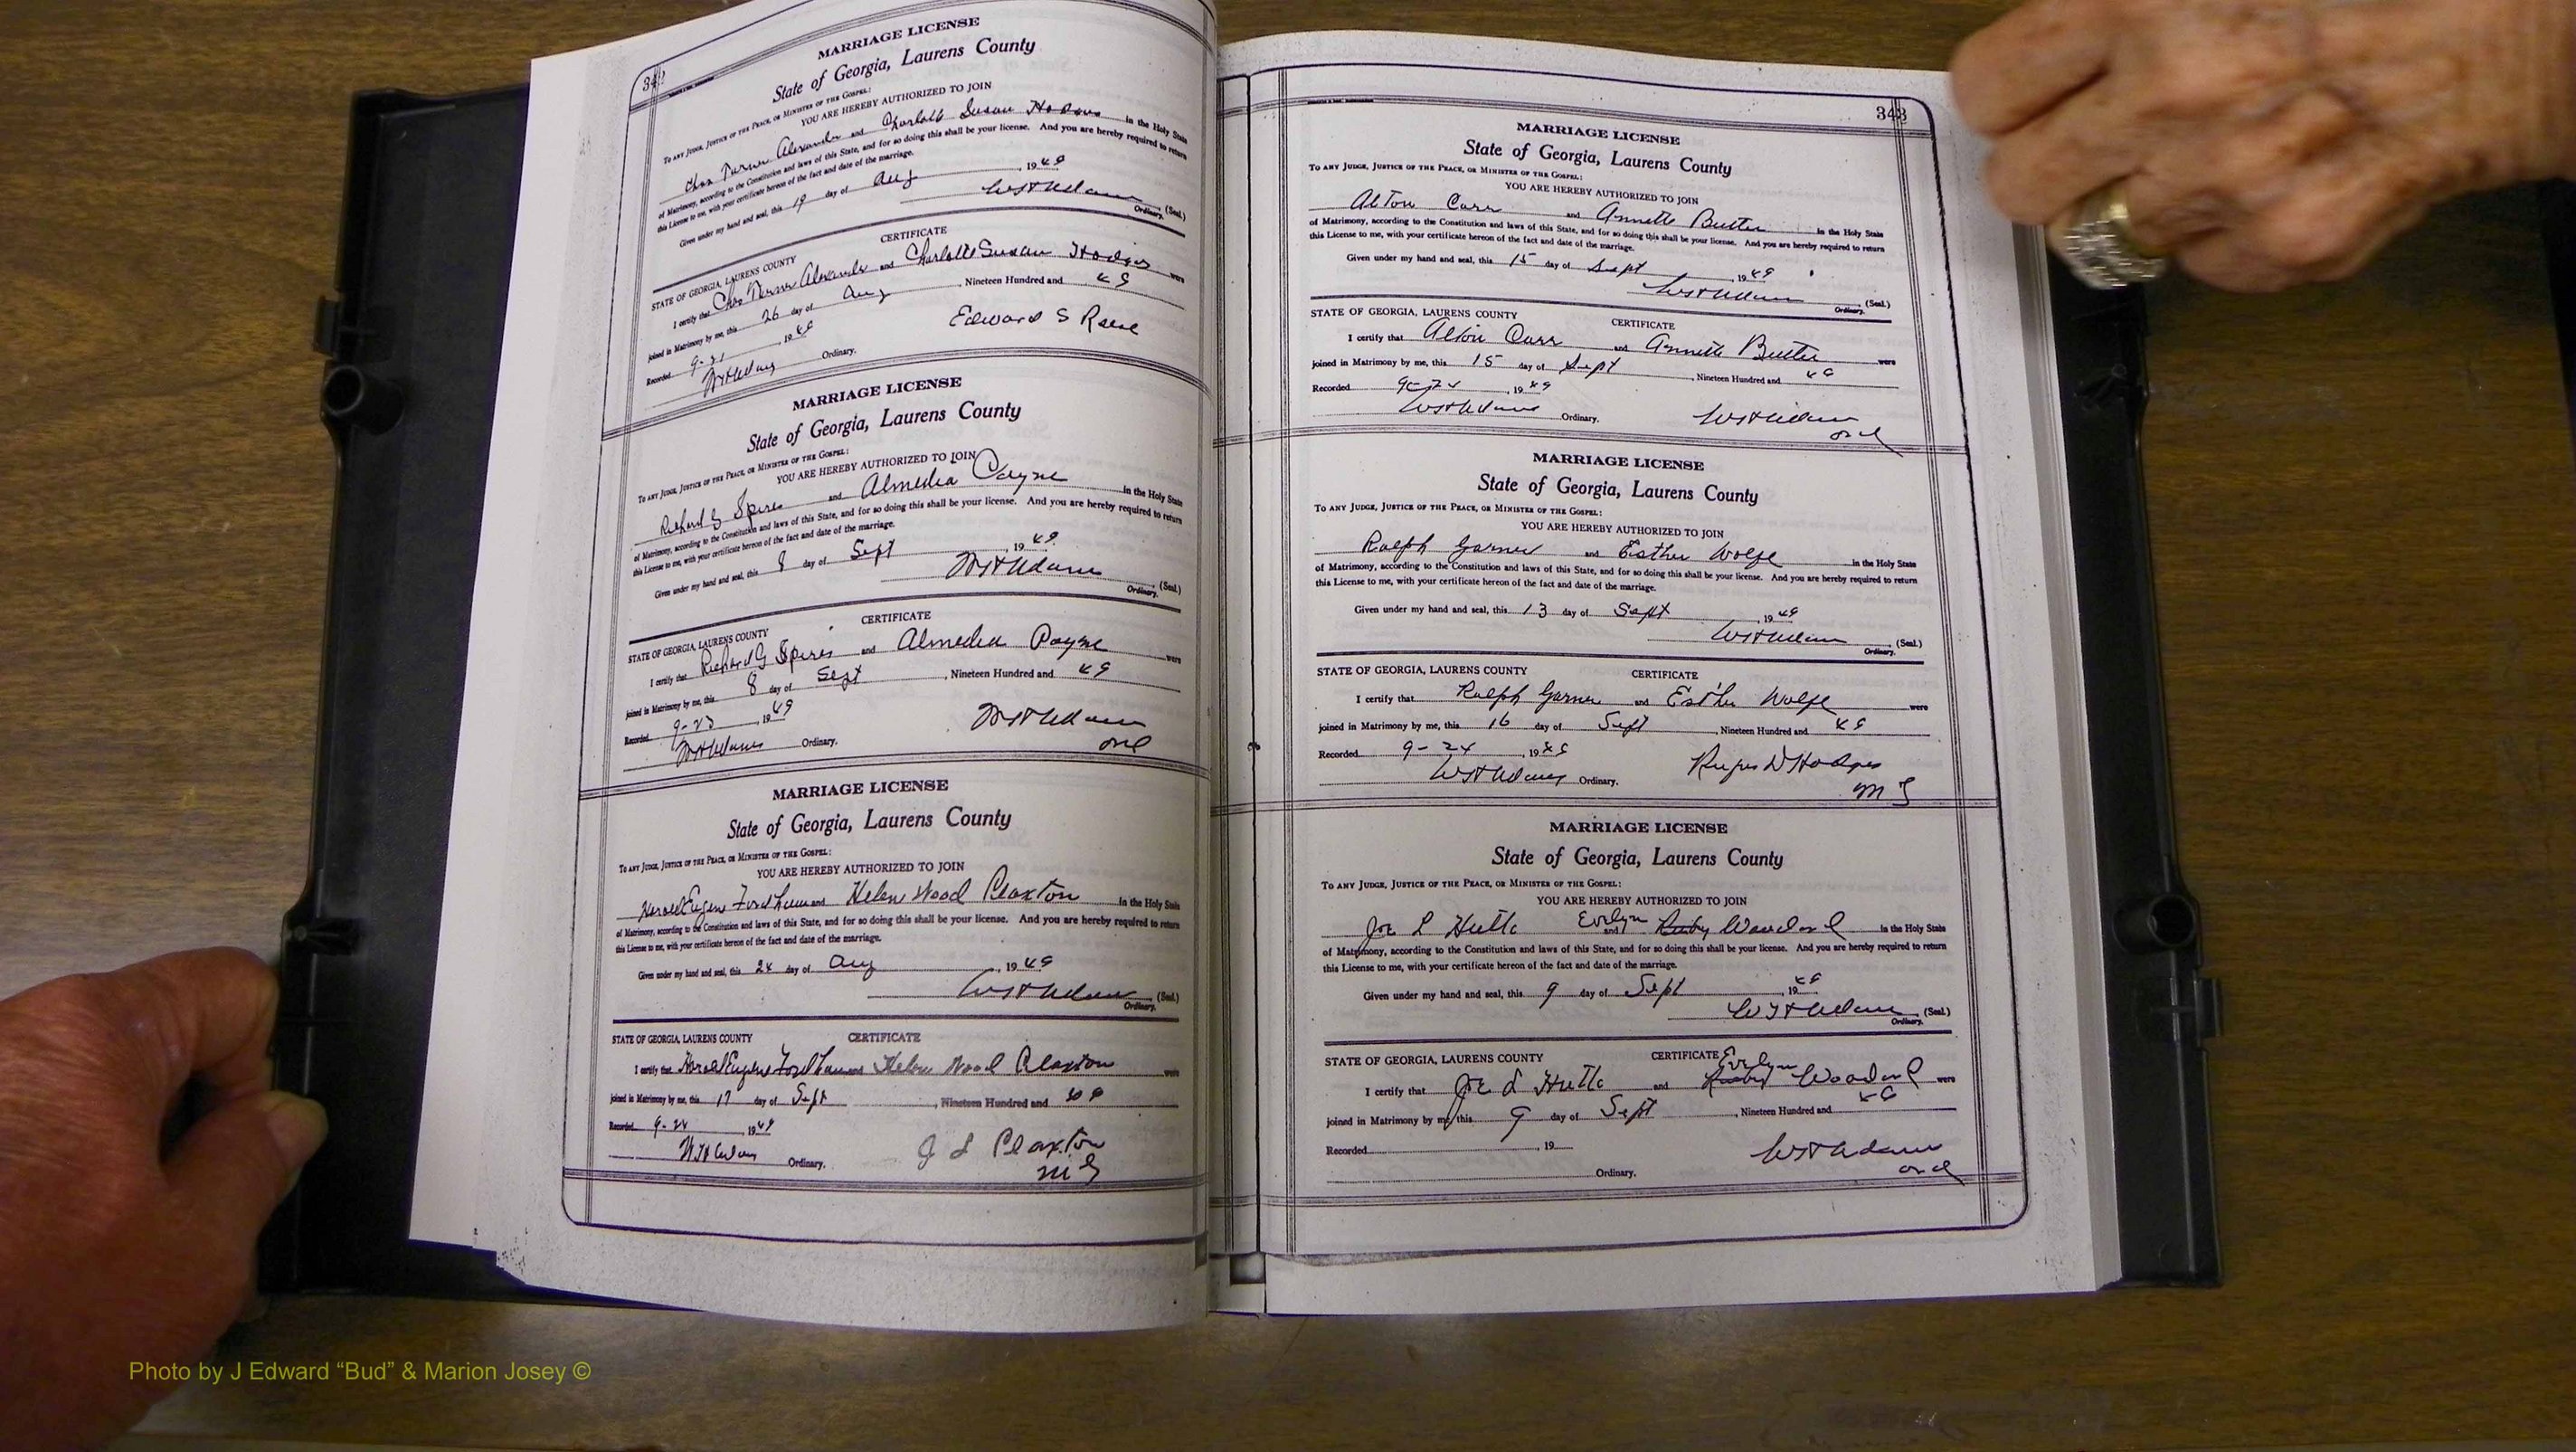 342
MARRIAGE LICENSE
State of Georgia, Laurens County
To any Judge, Justice of the Peace, or Minister of the Gospel:
YOU ARE HEREBY AUTHORIZED TO JOIN
Chas Turner Alexander and Charlotte Susan Hodges in the Holy State
of Matrimony, according to the Constitution and laws of this State, and for so doing this shall be your license. And you are hereby required to return
this License to me, with your certificate hereon of the fact and date of the marriage.
Given under my hand and seal, this 19 day of Aug, 1949
(Seal.)
Ordinary.
CERTIFICATE
STATE OF GEORGIA, LAURENS COUNTY
I certify that Chas Turner Alexander and Charlotte Susan Hodges were
joined in Matrimony by me, this 26 day of Aug, Nineteen Hundred and 49
Recorded 9-21, 1949
Edward S Reese
Ordinary.
MARRIAGE LICENSE
State of Georgia, Laurens County
To any Judge, Justice of the Peace, or Minister of the Gospel:
YOU ARE HEREBY AUTHORIZED TO JOIN
Richard G Spires and Almedia Payne in the Holy State
of Matrimony, according to the Constitution and laws of this State, and for so doing this shall be your license. And you are hereby required to return
this License to me, with your certificate hereon of the fact and date of the marriage.
Given under my hand and seal, this 8 day of Sept, 1949
(Seal.)
Ordinary.
CERTIFICATE
STATE OF GEORGIA, LAURENS COUNTY
I certify that Richard G Spires and Almedia Payne were
joined in Matrimony by me, this 8 day of Sept, Nineteen Hundred and 49
Recorded 9-23, 1949
Ordinary.
MARRIAGE LICENSE
State of Georgia, Laurens County
To any Judge, Justice of the Peace, or Minister of the Gospel:
YOU ARE HEREBY AUTHORIZED TO JOIN
Harold Eugene Fordham and Helen Wood Claxton in the Holy State
of Matrimony, according to the Constitution and laws of this State, and for so doing this shall be your license. And you are hereby required to return
this License to me, with your certificate hereon of the fact and date of the marriage.
Given under my hand and seal, this 24 day of Aug, 1949
(Seal.)
Ordinary.
STATE OF GEORGIA, LAURENS COUNTY CERTIFICATE
I certify that Harold Eugene Fordham and Helen Wood Claxton were
joined in Matrimony by me, this 17 day of Sept, Nineteen Hundred and 49
Recorded 9-24, 1949
Ordinary.
J L Claxton
MG
343
MARRIAGE LICENSE
State of Georgia, Laurens County
To any Judge, Justice of the Peace, or Minister of the Gospel:
YOU ARE HEREBY AUTHORIZED TO JOIN
Alton Carr and Annette Butler in the Holy State
of Matrimony, according to the Constitution and laws of this State, and for so doing this shall be your license. And you are hereby required to return
this License to me, with your certificate hereon of the fact and date of the marriage.
Given under my hand and seal, this 15 day of Sept, 1949
(Seal.)
Ordinary.
STATE OF GEORGIA, LAURENS COUNTY CERTIFICATE
I certify that Alton Carr and Annette Butler were
joined in Matrimony by me, this 15 day of Sept, Nineteen Hundred and 49
Recorded 9-24, 1949
Ordinary.
MARRIAGE LICENSE
State of Georgia, Laurens County
To any Judge, Justice of the Peace, or Minister of the Gospel:
YOU ARE HEREBY AUTHORIZED TO JOIN
Ralph Garner and Esther Wolfe in the Holy State
of Matrimony, according to the Constitution and laws of this State, and for so doing this shall be your license. And you are hereby required to return
this License to me, with your certificate hereon of the fact and date of the marriage.
Given under my hand and seal, this 13 day of Sept, 1949
(Seal.)
Ordinary.
STATE OF GEORGIA, LAURENS COUNTY CERTIFICATE
I certify that Ralph Garner and Esther Wolfe were
joined in Matrimony by me, this 16 day of Sept, Nineteen Hundred and 49
Recorded 9-24, 1949
Ordinary.
Rufus D Hodges
MG
MARRIAGE LICENSE
State of Georgia, Laurens County
To any Judge, Justice of the Peace, or Minister of the Gospel:
YOU ARE HEREBY AUTHORIZED TO JOIN
Joe L Hutto and Evelyn Ruby Woodard in the Holy State
of Matrimony, according to the Constitution and laws of this State, and for so doing this shall be your license. And you are hereby required to return
this License to me, with your certificate hereon of the fact and date of the marriage.
Given under my hand and seal, this 9 day of Sept, 1949
(Seal.)
Ordinary.
STATE OF GEORGIA, LAURENS COUNTY CERTIFICATE
I certify that Joe L Hutto and Evelyn Woodard were
joined in Matrimony by me, this 9 day of Sept, Nineteen Hundred and 49
Recorded, 19
Ordinary.
Photo by J Edward “Bud” & Marion Josey ©